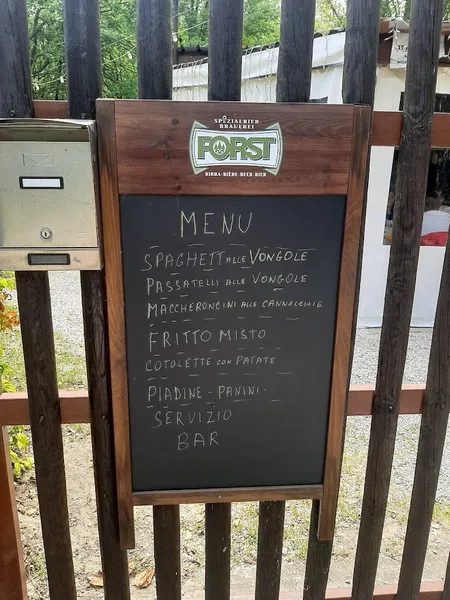 SPEZIALBIER-
BRAUEREI
FORST
BIRRA·BIÈRE·BEER·BIER
MENU
SPAGHETTI ALLE VONGOLE
PASSATELLI ALLE VONGOLE
MACCHERONCINI ALLE CANNOCCHIE
FRITTO MISTO
COTOLETTE CON PATATE
PIADINE - PANINI -
SERVIZIO
BAR